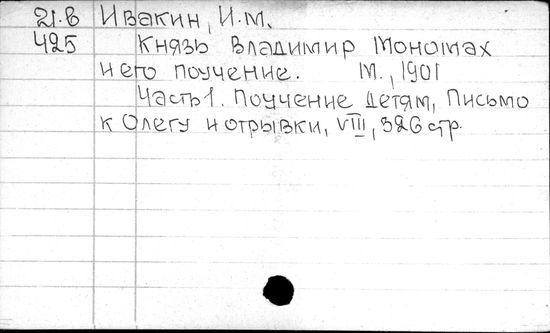 21.В Ивакин, И.М.
425 Князь Владимир Мономах
и его поучение. М., 1901
Часть 1. Поучение детям, Письмо
к Олегу и отрывки, VIII, 326 стр.